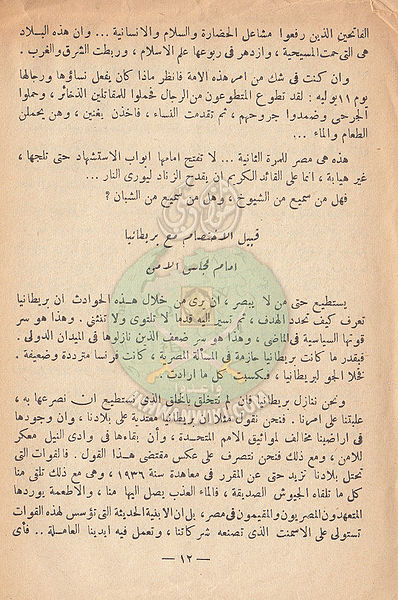 الفاتحين الذين رفعوا مشاعل الحضارة والسلام والانسانية ... وان هذه البلاد
هى التى حمت المسيحية ، وازدهر فى ربوعها علم الاسلام ، وربطت الشرق والغرب .
وان كنت فى شك من امر هذه الامة فانظر ماذا كان يفعل نساؤها ورجالها
يوم ١١ يوليه : لقد تطوع المتطوعون من الرجال فحملوا للمقاتلين الذخائر ، وحملوا
الجرحى وضمدوا جروحهم ، ثم تقدمت النساء ، فأخذن يغنين ، وهن يحملن
الطعام والماء ...
هذه هى مصر للمرة الثانية ... لا تفتح امامها ابواب الاستشهاد حتى تلجها ،
غير هيابة ، انما على القائد الكريم ان يقدح الزناد ليورى النار ...
فهل من سميع من الشيوخ ، وهل من سميع من الشبان ؟
قبيل الاختصام مع بريطانيا
امام مجلس الامن
يستطيع حتى من لا يبصر ، ان يرى من خلال هذه الحوادث ان بريطانيا
تعرف كيف تحدد الهدف ، ثم تسير اليه قدما لا تلتوى ولا تنثنى . وهذا هو سر
قوتها السياسية فى الماضى ، وهذا هو سر ضعف الذين نازلوها فى الميدان الدولى .
فبقدر ما كانت بريطانيا حازمة فى المسألة المصرية ، كانت فرنسا مترددة وضعيفة .
فخلا الجو لبريطانيا ، فكسبت كل ما ارادت .
ونحن ننازل بريطانيا فان لم نتخلق بالخلق الذى نستطيع ان نصرعها به ،
غلبتنا على امرنا . فنحن نقول مثلا ان بريطانيا معتدية على بلادنا ، وان وجودها
فى اراضينا مخالف لمواثيق الامم المتحدة ، وأن بقاءها فى وادى النيل معكر
للامن ، ومع ذلك فنحن نتصرف على عكس مقتضى هذا القول . فالقوات التى
تحتل بلادنا تزيد حتى عن المقرر فى معاهدة سنة ١٩٣٦ ، وهى مع ذلك تلقى منا
كل ما تلقاه الجيوش الصديقة ، فالماء العذب يصل اليها منا ، والاطعمة يوردها
المتعهدون المصريون والمقيمون فى مصر ، بل ان الابنية الحديثة التى تؤسس لهذه القوات
تستولى على الاسمنت الذى تصنعه شركاتنا ، وتعمل فيه ايدينا العاملة .. فأى
— ١٢ —